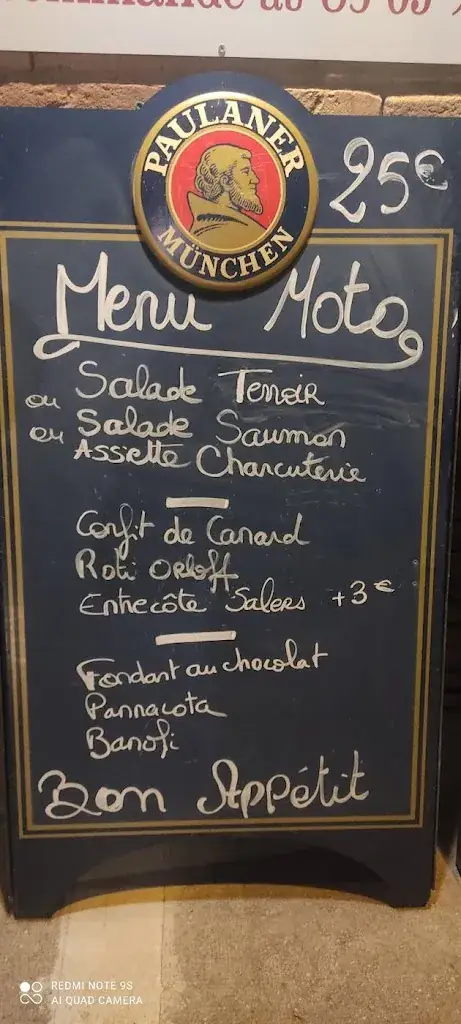 PAULANER
MÜNCHEN
25€
Menu Moto
Salade Terroir
ou Salade Saumon
ou Assette Charcuterie
Confit de Canard
Roti Orloff
Entrecôte Salers +3€
Fondant au chocolat
Pannacota
Banofi
Bon Appétit
REDMI NOTE 9S
AI QUAD CAMERA